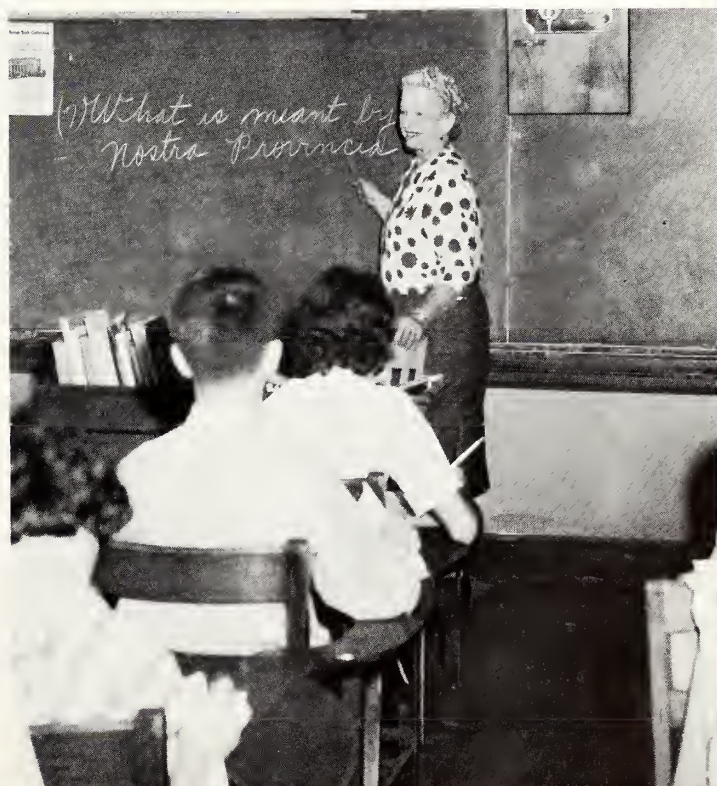 (1) What is meant by
Nostra Provincia